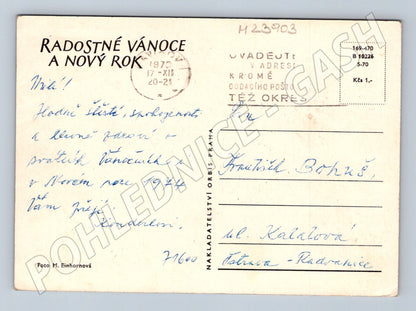 M23903
RADOSTNÉ VÁNOCE
A NOVÝ ROK
1973
17.-XII
20-21
UVÁDĚJTE
V ADRESE
KROMĚ
DODACÍHO POŠTY
TÉŽ OKRES
169-470
B 10226
5-70
Kčs 1,-
Milí!
Hodně štěstí, spokojenosti
a hlavně zdraví o
svátcích Vánočních a
v Novém roce 1974
Vám přejí
František Bohuš,
ul. Kalátová
Ostrava - Radvanice
71600
Foto M. Einhornová
NAKLADATELSTVÍ ORBIS, PRAHA
POHLEDNICE - GASH